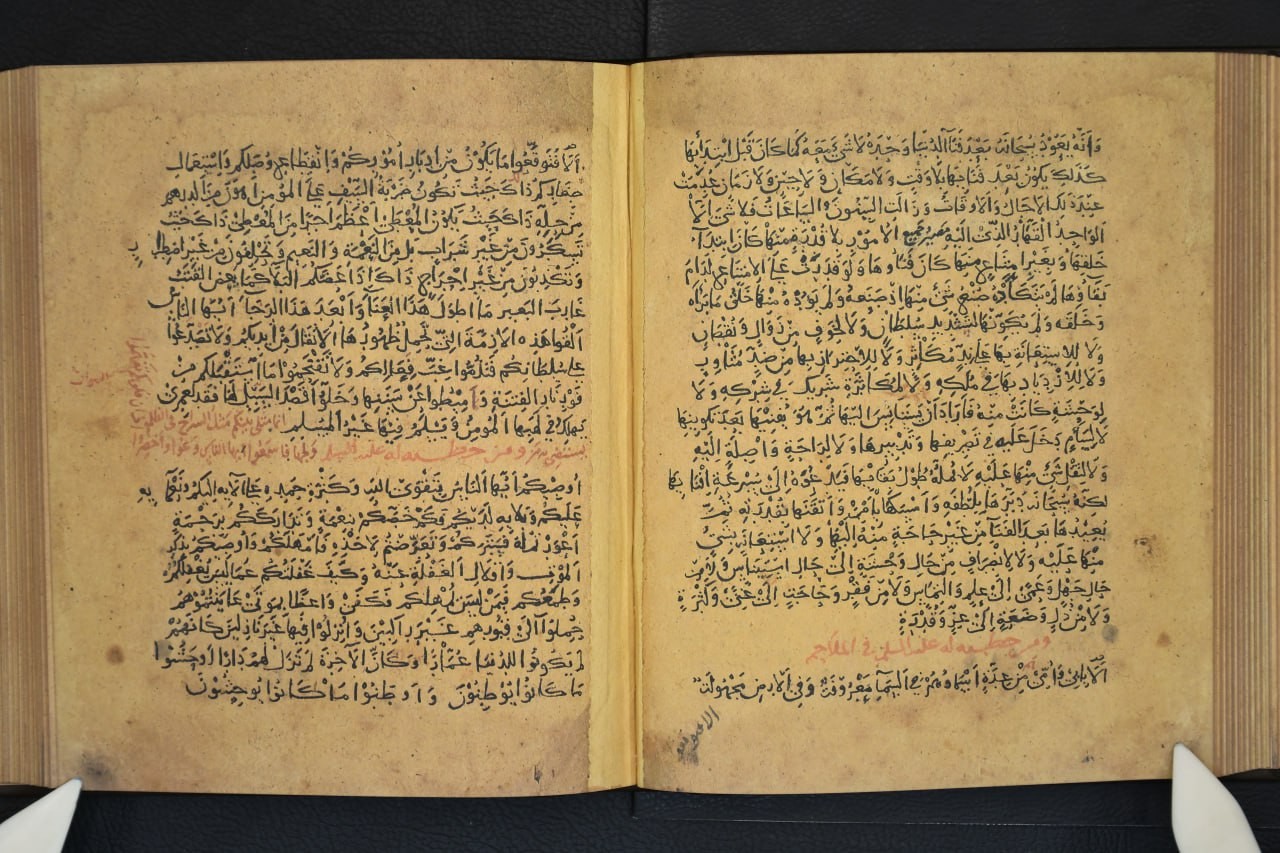 وَأَنَّهُ يَعُودُ سُبحَانَهُ بَعْدَ فَنَاءِ الدُّنْيَا وَحْدَهُ لَا شَيْءَ مَعَهُ كَمَا كَانَ قَبْلَ ابْتِدَائِهَا
كَذَلِكَ يَكُونُ بَعْدَ فَنَائِهَا بِلَا وَقْتٍ وَلَا مَكَانٍ وَلَا حِينٍ وَلَا زَمَانٍ عُدِمَتْ
عِنْدَ ذَلِكَ الْآجَالُ وَالْأَوْقَاتُ وَزَالَتِ السِّنُونَ وَالسَّاعَاتُ فَلَا شَيْءَ إِلَّا
الْوَاحِدُ الْقَهَّارُ الَّذِي إِلَيْهِ مَصِيرُ جَمِيعِ الْأُمُورِ بِلَا قُدْرَةٍ مِنْهَا كَانَ ابْتِدَاءُ
خَلْقِهَا وَبِغَيْرِ امْتِنَاعٍ مِنْهَا كَانَ فَنَاؤُهَا وَلَوْ قَدَرَتْ عَلَى الِامْتِنَاعِ لَدَامَ
بَقَاؤُهَا لَمْ يَتَكَاءَدْهُ صُنْعُ شَيْءٍ مِنْهَا إِذْ صَنَعَهُ وَلَمْ يَؤُدْهُ مِنْهَا خَلْقُ مَا بَرَأَهُ
وَخَلَقَهُ وَلَمْ يُكَوِّنْهَا لِتَشْدِيدِ سُلْطَانٍ وَلَا لِخَوْفٍ مِنْ زَوَالٍ وَنُقْصَانٍ
وَلَا لِلِاسْتِعَانَةِ بِهَا عَلَى نِدٍّ مُكَاثِرٍ وَلَا لِلِاحْتِرَازِ بِهَا مِنْ ضِدٍّ مُثَاوِرٍ
وَلَا لِلِازْدِيَادِ بِهَا فِي مُلْكِهِ وَلَا لِمُكَاثَرَةِ شَرِيكٍ فِي شِرْكِهِ وَلَا
لِوَحْشَةٍ كَانَتْ مِنْهُ فَأَرَادَ أَنْ يَسْتَأْنِسَ إِلَيْهَا ثُمَّ هُوَ يُفْنِيهَا بَعْدَ تَكْوِينِهَا
لَا لِسَأَمٍ دَخَلَ عَلَيْهِ فِي تَصْرِيفِهَا وَتَدْبِيرِهَا وَلَا لِرَاحَةٍ وَاصِلَةٍ إِلَيْهِ
وَلَا لِثِقَلِ شَيْءٍ مِنْهَا عَلَيْهِ لَا يُمِلُّهُ طُولُ بَقَائِهَا فَيَدْعُوَهُ إِلَى سُرْعَةِ إِفْنَائِهَا
لَكِنَّهُ سُبْحَانَهُ دَبَّرَهَا بِلُطْفِهِ وَأَمْسَكَهَا بِأَمْرِهِ وَأَتْقَنَهَا بِقُدْرَتِهِ ثُمَّ
يُعِيدُهَا بَعْدَ الْفَنَاءِ مِنْ غَيْرِ حَاجَةٍ مِنْهُ إِلَيْهَا وَلَا اسْتِعَانَةٍ بِشَيْءٍ
مِنْهَا عَلَيْهِ وَلَا لِانْصِرَافٍ مِنْ حَالِ وَحْشَةٍ إِلَى حَالِ اسْتِئْنَاسٍ وَلَا مِنْ
حَالِ جَهْلٍ وَعَمًى إِلَى عِلْمٍ وَالْتِمَاسٍ وَلَا مِنْ فَقْرٍ وَحَاجَةٍ إِلَى غِنًى وَكَثْرَةٍ
وَلَا مِنْ ذُلٍّ وَضَعَةٍ إِلَى عِزٍّ وَقُدْرَةٍ
ومن خطبه له عليه السلم في الملاحم
أَلَا بِأَبِي وَأُمِّي مِنْ عِدَّةٍ أَسْمَاؤُهُمْ فِي السَّمَاءِ مَعْرُوفَةٌ وَفِي الْأَرْضِ مَجْهُولَةٌ
أَلَا فَتَوَقَّعُوا مَا يَكُونُ مِنْ إِدْبَارِ أُمُورِكُمْ وَانْقِطَاعِ وُصَلِكُمْ وَاسْتِعْمَالِ
صِغَارِكُمْ ذَاكَ حَيْثُ تَكُونُ ضَرْبَةُ السَّيْفِ عَلَى الْمُؤْمِنِ أَهْوَنَ مِنَ الدِّرْهَمِ
مِنْ حِلِّهِ ذَاكَ حَيْثُ يَكُونُ الْمُعْطَى أَعْظَمَ أَجْرًا مِنَ الْمُعْطِي ذَاكَ حَيْثُ
تَسْكَرُونَ مِنْ غَيْرِ شَرَابٍ بَلْ مِنَ النِّعْمَةِ وَالنَّعِيمِ وَتَحْلِفُونَ مِنْ غَيْرِ اضْطِرَارٍ
وَتَكْذِبُونَ مِنْ غَيْرِ إِحْرَاجٍ ذَاكَ إِذَا عَضَّكُمُ الْبَلَاءُ كَمَا يَعَضُّ الْقَتَبُ
غَارِبَ الْبَعِيرِ مَا أَطْوَلَ هَذَا الْعَنَاءَ وَأَبْعَدَ هَذَا الرَّجَاءَ أَيُّهَا النَّاسُ
أَلْقُوا هَذِهِ الْأَزِمَّةَ الَّتِي تَحْمِلُ ظُهُورُهَا الْأَثْقَالَ مِنْ أَيْدِيكُمْ وَلَا تَصَدَّعُوا
عَلَى سُلْطَانِكُمْ فَتَذُمُّوا غِبَّ فِعَالِكُمْ وَلَا تَقْتَحِمُوا مَا اسْتَقْبَلَكُمْ مِنْ
فَوْرِ نَارِ الْفِتْنَةِ وَأَمِيطُوا عَنْ سَنَنِهَا وَخَلُّوا قَصْدَ السَّبِيلِ لَهَا فَقَدْ لَعَمْرِي
يَهْلِكُ فِي لَهَبِهَا الْمُؤْمِنُ وَيَسْلَمُ فِيهَا غَيْرُ الْمُسْلِمِ إنما مثلي بينكم مثل السراج في الظلمة
ومن خطبه له عليه السلم
أُوصِيكُمْ أَيُّهَا النَّاسُ بِتَقْوَى اللهِ وَكَثْرَةِ حَمْدِهِ عَلَى آلَائِهِ إِلَيْكُمْ وَنَعْمَائِهِ
عَلَيْكُمْ وَبَلَائِهِ لَدَيْكُمْ فَكَمْ خَصَّكُمْ بِنِعْمَةٍ وَتَدَارَكَكُمْ بِرَحْمَةٍ
أَعْوَرْتُمْ لَهُ فَسَتَرَكُمْ وَتَعَرَّضْتُمْ لِأَخْذِهِ فَأَمْهَلَكُمْ وَأُوصِيكُمْ بِذِكْرِ
الْمَوْتِ وَإِقْلَالِ الْغَفْلَةِ عَنْهُ وَكَيْفَ غَفْلَتُكُمْ عَمَّا لَيْسَ يُغْفِلُكُمْ
وَطَمَعُكُمْ فِيمَنْ لَيْسَ يُمْهِلُكُمْ فَكَفَى وَاعِظًا بِمَوْتَى عَايَنْتُمُوهُمْ
حُمِلُوا إِلَى قُبُورِهِمْ غَيْرَ رَاكِبِينَ وَأُنْزِلُوا فِيهَا غَيْرَ نَازِلِينَ كَأَنَّهُمْ
لَمْ يَكُونُوا لِلدُّنْيَا عُمَّارًا وَكَأَنَّ الْآخِرَةَ لَمْ تَزَلْ لَهُمْ دَارًا أَوْحَشُوا
مَا كَانُوا يُوطِنُونَ وَأَوْطَنُوا مَا كَانُوا يُوحِشُونَ